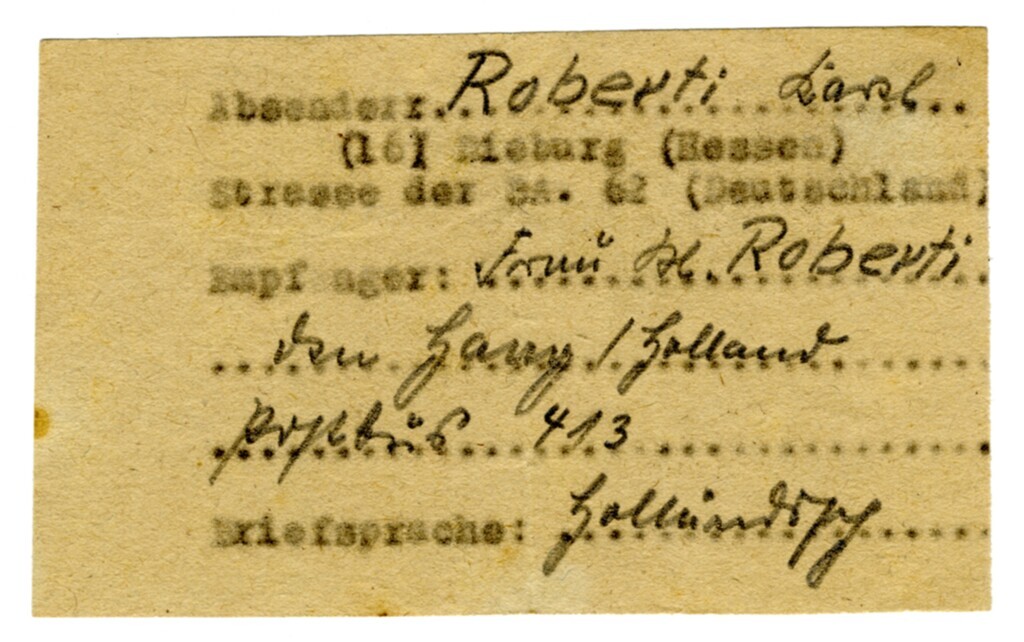 Absenderr..Roberti Karl..
(16) Dieburg (Hessen)
Strasse der SA. 62 (Deutschland)
Empf nger: Frau M. Roberti
den Haag / Holland
Postbus 413
Briefsprache: Holländisch